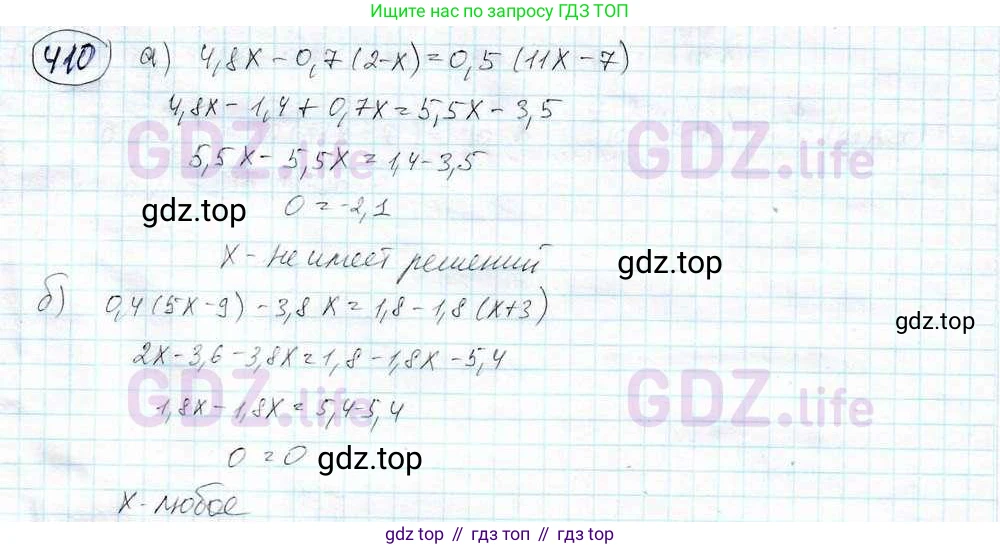 Ищите нас по запросу ГДЗ ТОП
410 а) 4,8x - 0,7(2-x) = 0,5(11x-7)
4,8x - 1,4 + 0,7x = 5,5x - 3,5
GDZ.life GDZ.life
5,5x - 5,5x = 1,4 - 3,5
gdz.top 0 = -2,1
x - не имеет решений gdz.top
б) 0,4(5x-9) - 3,8x = 1,8 - 1,8(x+3)
gdz.top
2x - 3,6 - 3,8x = 1,8 - 1,8x - 5,4
GDZ.life GDZ.life
1,8x - 1,8x = 5,4 - 5,4
0 = 0 gdz.top
x - любое
gdz top // гдз топ // gdz.top // гдз.top